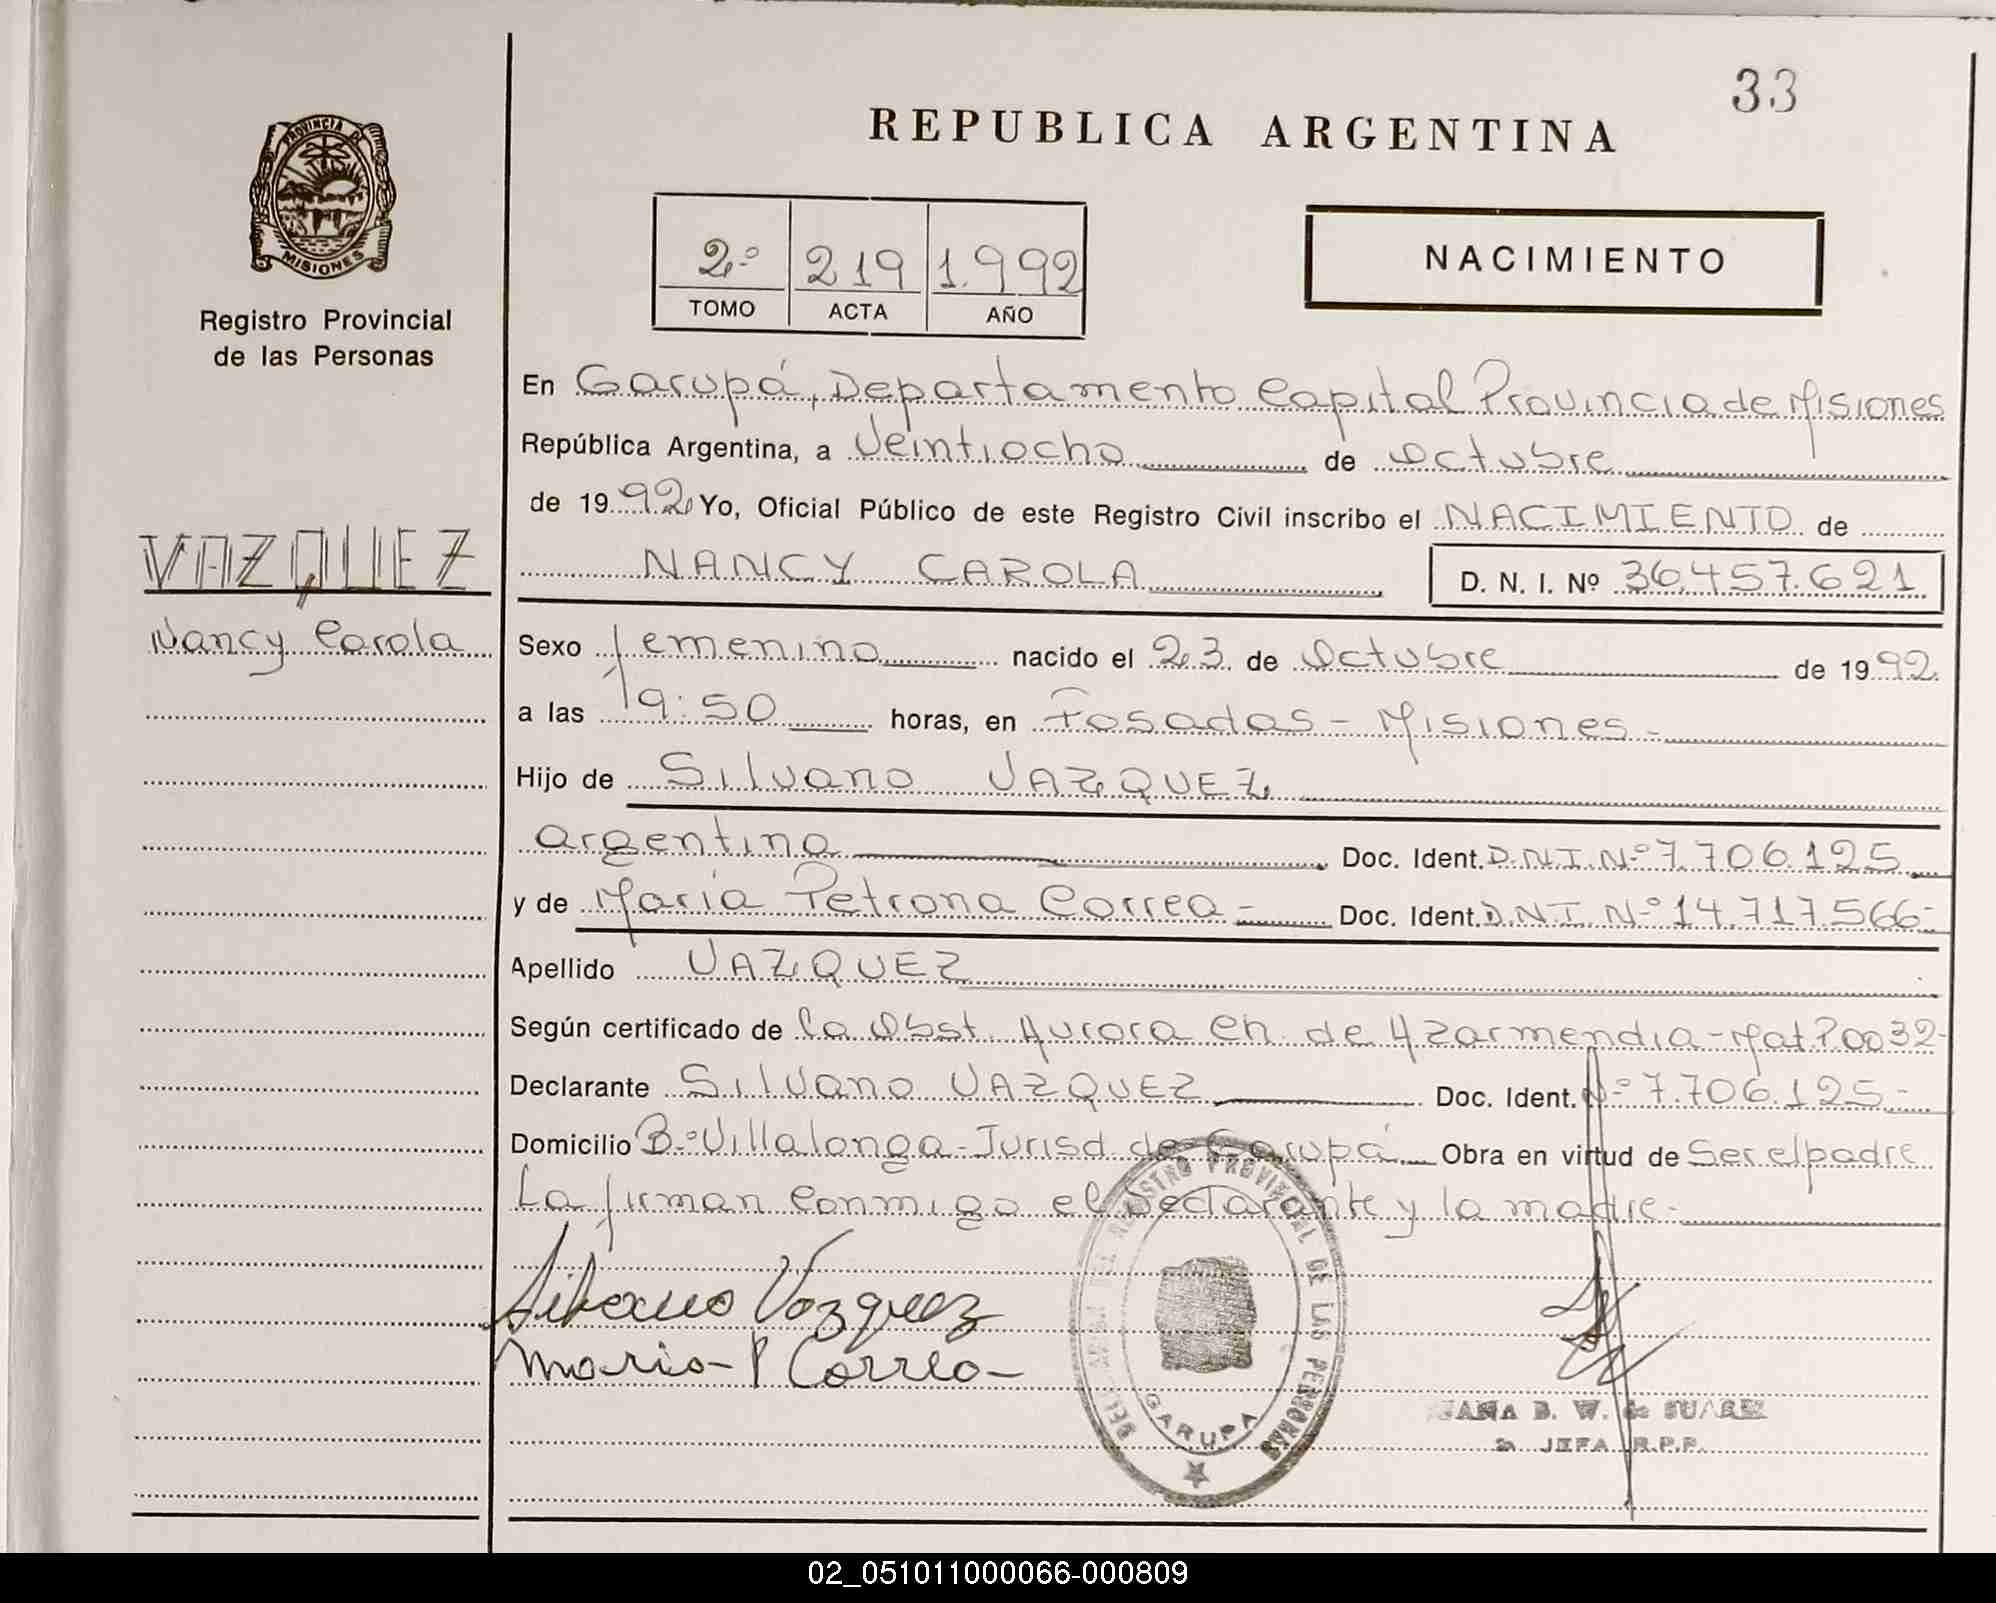 33
REPUBLICA ARGENTINA
PROVINCIA DE
MISIONES
Registro Provincial
de las Personas
2º 219 1.992
TOMO ACTA AÑO
NACIMIENTO
En Garupá, Departamento Capital Provincia de Misiones
República Argentina, a Veintiocho de Octubre
de 1992 Yo, Oficial Público de este Registro Civil inscribo el NACIMIENTO de
NANCY CAROLA D. N. I. Nº 36.457.621
VAZQUEZ
Nancy Carola
Sexo femenino nacido el 23 de Octubre de 1992
a las 19:50 horas, en Posadas - Misiones -
Hijo de Silvano VAZQUEZ
argentino Doc. Ident. D.N.I. Nº 7.706.125
y de María Petrona Correa - Doc. Ident. D.N.I. Nº 14.717.566-
Apellido VAZQUEZ
Según certificado de la Obst. Aurora Ch. de Azarmendia - Mat. P.0032-
Declarante Silvano VAZQUEZ Doc. Ident. Nº 7.706.125-
Domicilio Bº Villalonga - Jurisd. de Garupá Obra en virtud de Ser el padre
La firman conmigo el Declarante y la madre -
Silvano Vazquez
Maria - P Correa -
REGISTRO PROVINCIAL DE LAS PERSONAS
GARUPA
JUANA B. W. de SUAREZ
JEFA R.P.P.
02_051011000066-000809